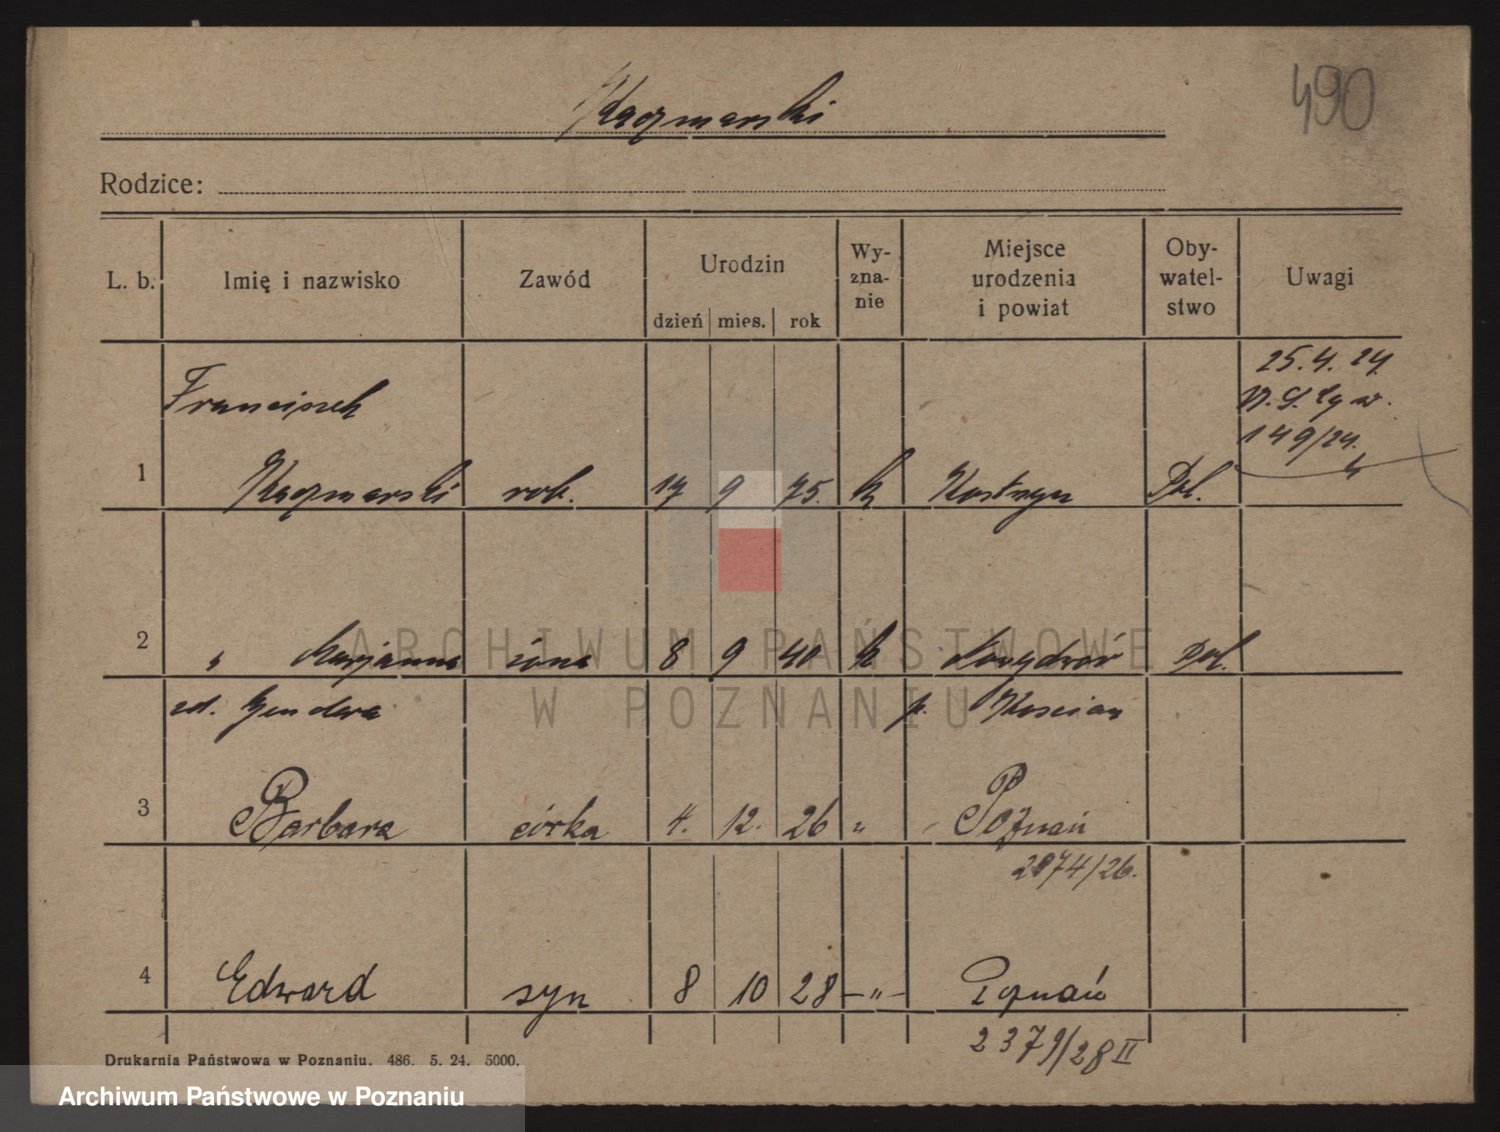 Kaczmarski
490
Rodzice:
L. b. Imię i nazwisko Zawód Urodzin Wy-zna-nie Miejsce urodzenia i powiat Oby-watel-stwo Uwagi
dzień mies. rok
25. 4. 24.
Franciszek
149/24.
1 Kaczmarski rob. 17 9 75. k Kostrzyn Pol.
2 " Marjanna żona 8 9 k Pol.
zd. p. Kościan
3 Barbara córka 4. 12. 26 " Poznań
2974/26.
4 Edward syn 8 10 28 -"- Poznań
2379/28 II
Drukarnia Państwowa w Poznaniu. 486. 5. 24. 5000.
ARCHIWUM PAŃSTWOWE
W POZNANIU
Archiwum Państwowe w Poznaniu